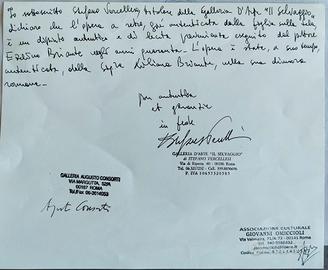 Io sottoscritto Stefano Vercellesi titolare della Galleria D'Arte "Il Selvaggio"
dichiaro che l'opera a retro, già autenticata dalla figlia sulla tela
è un dipinto autentico e di lecita provenienza eseguito dal pittore
Eselino Briante negli anni quaranta. L'opera è stata, a suo tempo,
autenticata, dalla Sig.ra Liliana Briante, nella sua dimora
romana.
per autentica
et garanzia
in fede
GALLERIA D'ARTE "IL SELVAGGIO"
di STEFANO VERCELLESI
Via di Ripetta, 00186 Roma
P. IVA 10697320585
GALLERIA AUGUSTO CONSORTI
VIA MARGUTTA, 52/A
00187 ROMA
Tel./Fax 06-3614053
Augusto Consorti
ASSOCIAZIONE CULTURALE
GIOVANNI OMICCIOLI
Roma